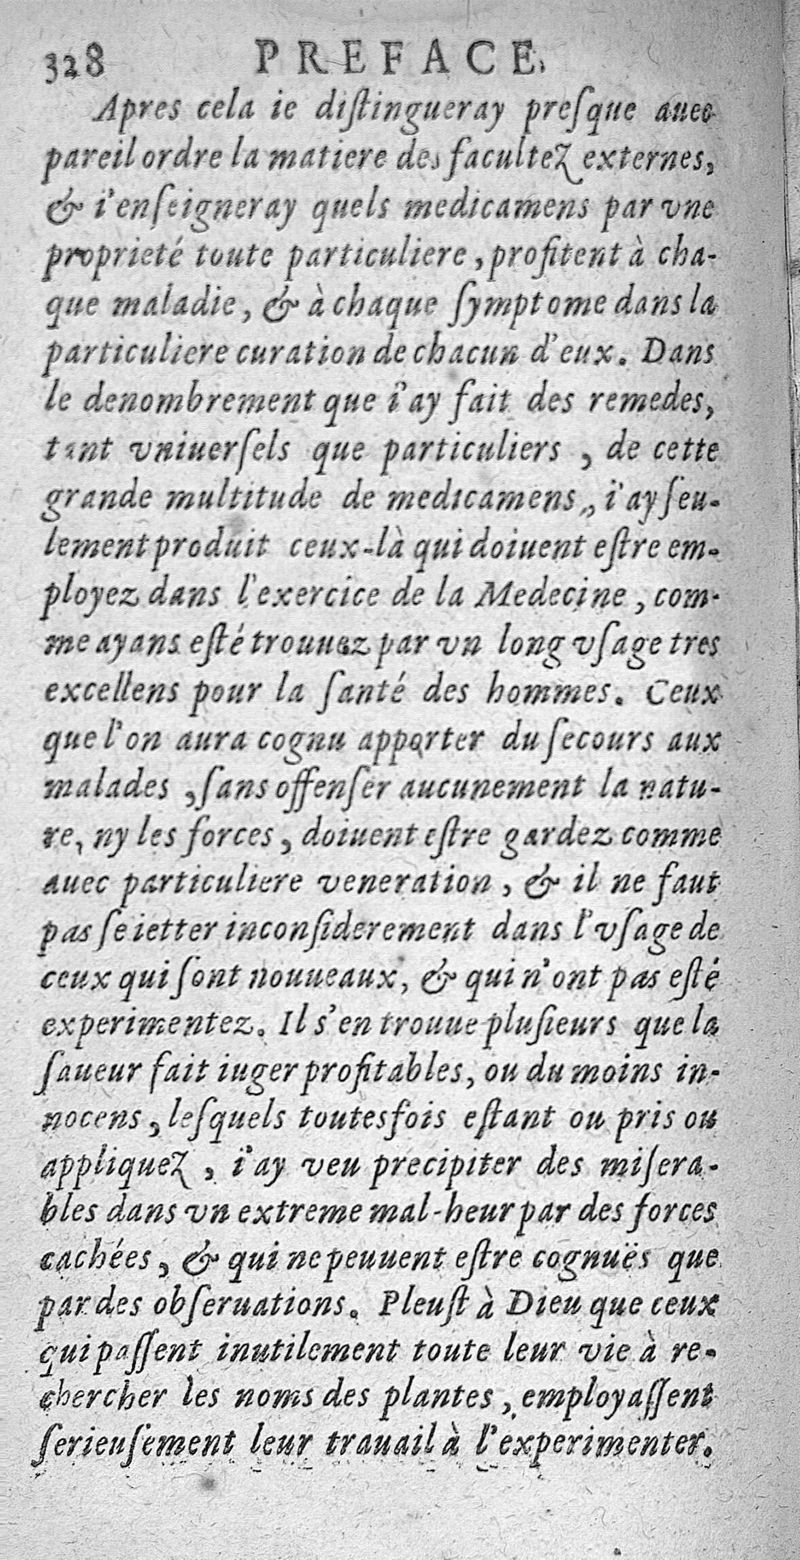 328 PREFACE.
Apres cela ie diſtingueray preſque auec
pareil ordre la matiere des facultez externes,
& i'enſeigneray quels medicamens par vne
proprieté toute particuliere, profitent à cha-
que maladie, & à chaque ſymptome dans la
particuliere curation de chacun d'eux. Dans
le denombrement que i'ay fait des remedes,
tant vniuerſels que particuliers, de cette
grande multitude de medicamens, i'ay ſeu-
lement produit ceux-là qui doiuent eſtre em-
ployez dans l'exercice de la Medecine, com-
me ayans eſté trouuez par vn long vſage tres
excellens pour la ſanté des hommes. Ceux
que l'on aura cognu apporter du ſecours aux
malades, ſans offenſer aucunement la natu-
re, ny les forces, doiuent eſtre gardez comme
auec particuliere veneration, & il ne faut
pas ſe ietter inconſiderement dans l'vſage de
ceux qui ſont nouueaux, & qui n'ont pas eſté
experimentez. Il s'en trouue pluſieurs que la
ſaueur fait iuger profitables, ou du moins in-
nocens, leſquels toutesfois eſtant ou pris ou
appliquez, i'ay veu precipiter des miſera-
bles dans vn extreme mal-heur par des forces
cachées, & qui ne peuuent eſtre cognuës que
par des obſeruations. Pleuſt à Dieu que ceux
qui paſſent inutilement toute leur vie à re-
chercher les noms des plantes, employaſſent
ſerieuſement leur trauail à l'experimenter.